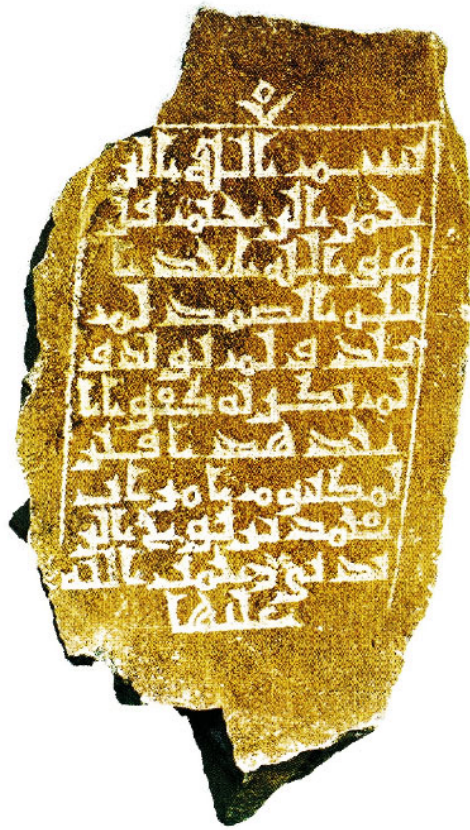 بسم الله الر
حمن الرحيم قل
هو الله احد ا
لله الصمد لم
يلد و لم يولد و
لم يكن له كفوا ا
حد هذا قبر
ام كلثوم
محمد بن
رحمت الله
عليها